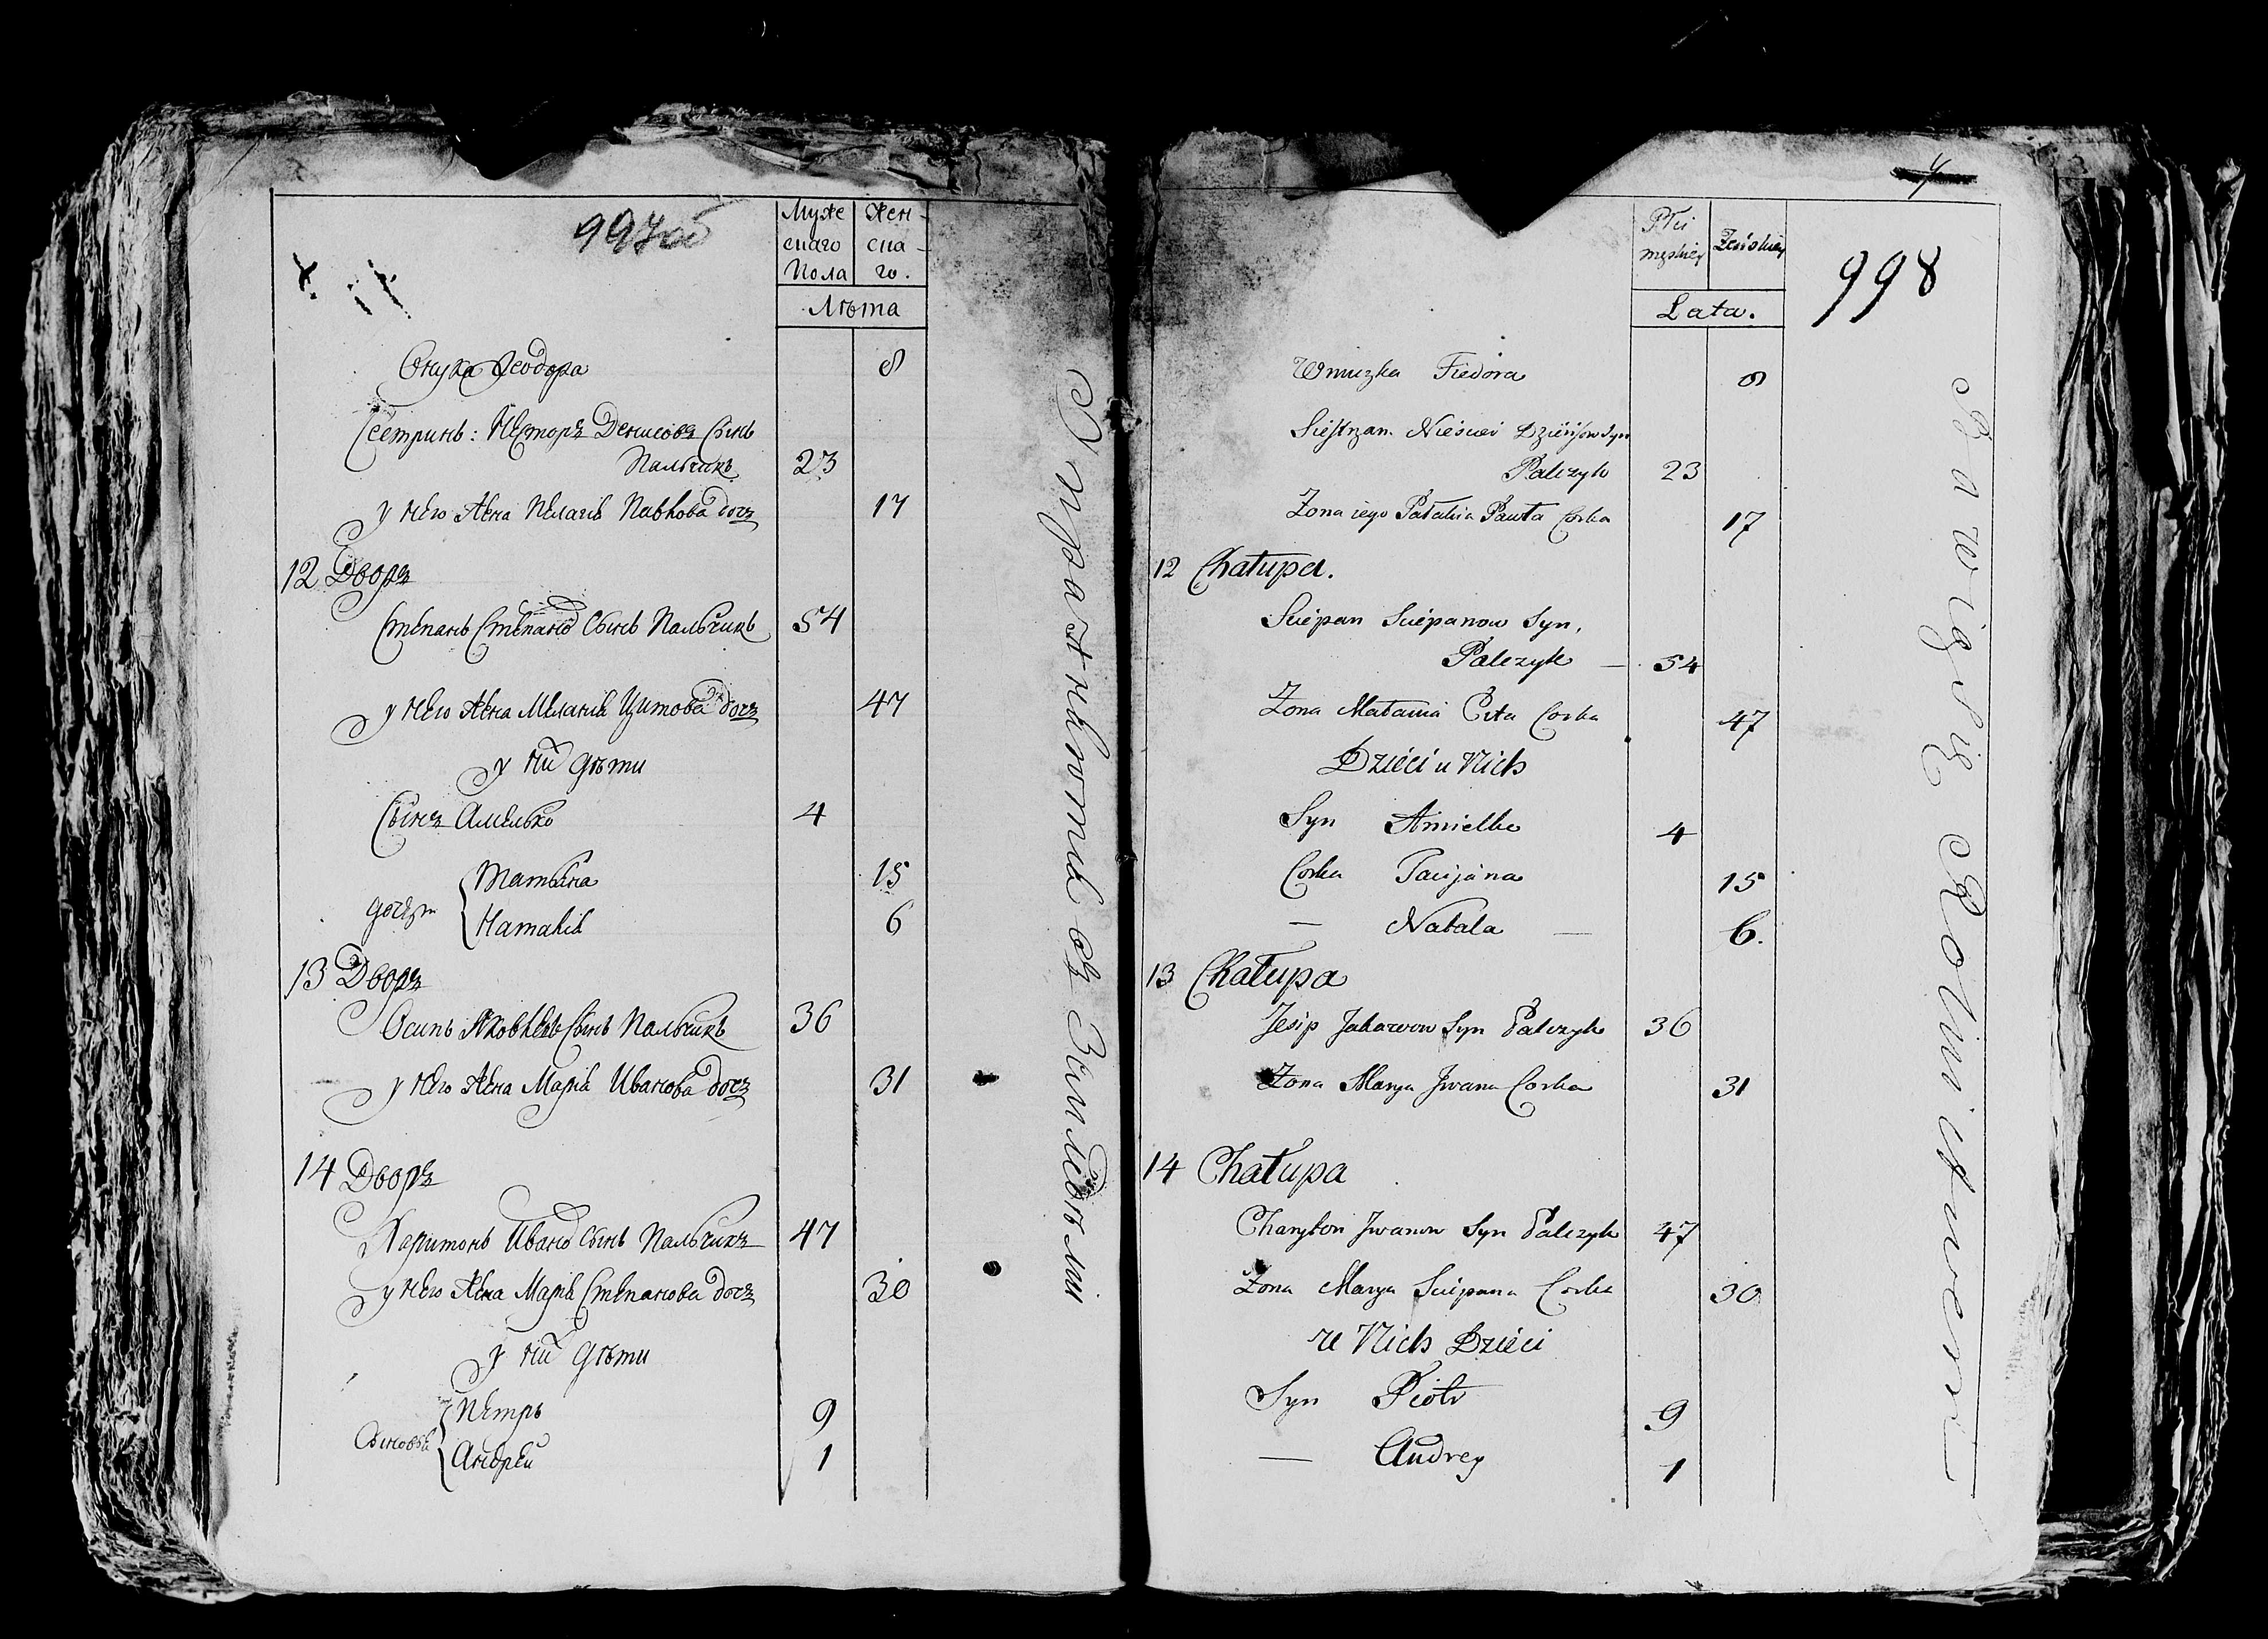 997 об
Муже Жен-
скаго ска-
Пола го.
Лѣта
Внука Ѳеодора 8
Сестринъ: Несторъ Денисовъ Сынъ
Пальчикъ 23
у него Жена Пелагія Павлова дочь 17
12 Дворъ
Степанъ Степановъ Сынъ Пальчикъ 54
у него Жена Меланія Цитова дочь 47
у них дѣти
Сынъ Амелько 4
дочери { Татьяна 15
Наталія 6
13 Дворъ
Осипъ Яковлевъ Сынъ Пальчикъ 36
у него Жена Марія Иванова дочь 31
14 Дворъ
Харитонъ Ивановъ Сынъ Пальчикъ 47
у него Жена Марія Степанова дочь 30
у них дѣти
Сыновья { Петръ 9
Андрей 1
4
998
Płci
męskiey Żeńskiey
Lata.
Wnuczka Fiedora 8
Siestrzan Syn
Palczyk 23
Zona iego Pałahia Pauła Corka 17
12 Chałupa.
Sciepan Sciepanow Syn,
Palczyk — 54
Zona Małania Cita Corka 47
Dzieci u Nich
Syn Amielko 4
Corka Tacijana 15
— Natala — 6.
13 Chałupa
Jesip Jakowow Syn Palczyk 36
Zona Marya Jwana Corka 31
14 Chałupa
Charyton Jwanow Syn Palczyk 47
Zona Marya Sciepana Corka 30
u Nich Dzieci
Syn Piotr 9
— Andrey 1